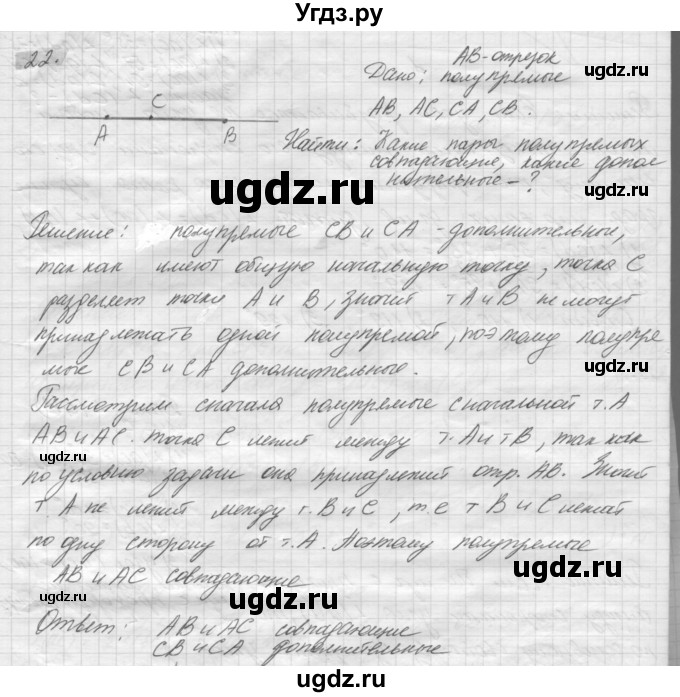 Угдз.ру
22.
АВ-отрезок
Дано: полупрямые
ugdz.ru
АВ, АС, СА, СВ.
ugdz.ru
С
А
В
Найти: Какие пары полупрямых
совпадающие, какие допол
нительные - ?
ugdz.ru
ugdz.ru
Решение: полупрямые СВ и СА - дополнительные,
так как имеют общую начальную точку, точка С
ugdz.ru
разделяет точки А и В, значит т А и В не могут
принадлежать одной полупрямой, поэтому полупря
мые СВ и СА дополнительные.
ugdz.ru
Рассмотрим сначала полупрямые с начальной т. А
АВ и АС. точка С лежит между т. А и т В, так как
ugdz.ru
по условию задачи она принадлежит отр. АВ. Значит
т А не лежит между т. В и С, т.е т В и С лежат
ugdz.ru
по одну сторону от т. А. Поэтому полупрямые
ugdz.ru
АВ и АС совпадающие
ugdz.ru
Ответ: АВ и АС совпадающие
СВ и СА дополнительные
ugdz.ru
ugdz.ru